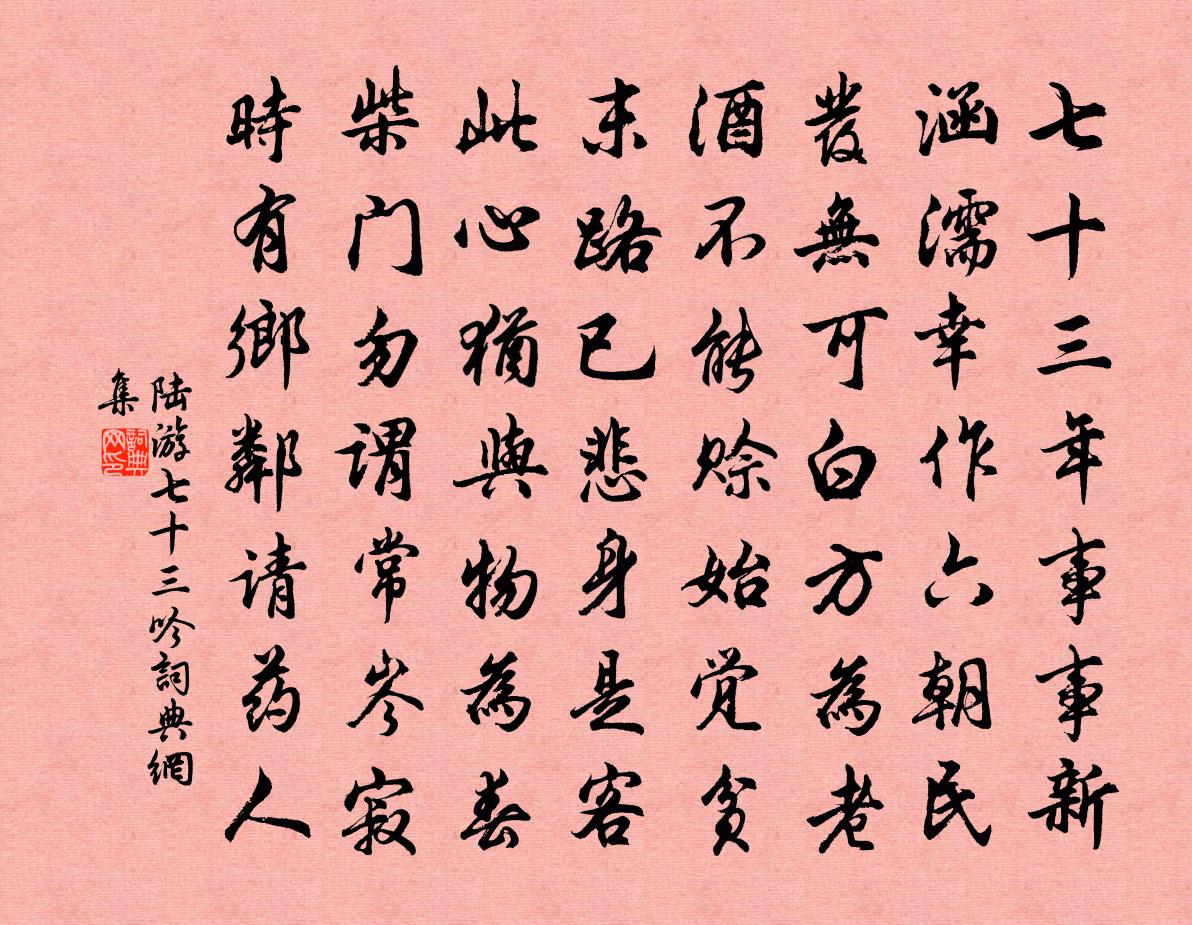 七十三年事事新
涵濡幸作六朝民
發無可白方為老
酒不能賒始觉貧
末路已悲身是客
此心猶與物為春
柴门勿謂常岑寂
時有鄉鄰请药人
陆游七十三吟詞典網
集
詞典
网印